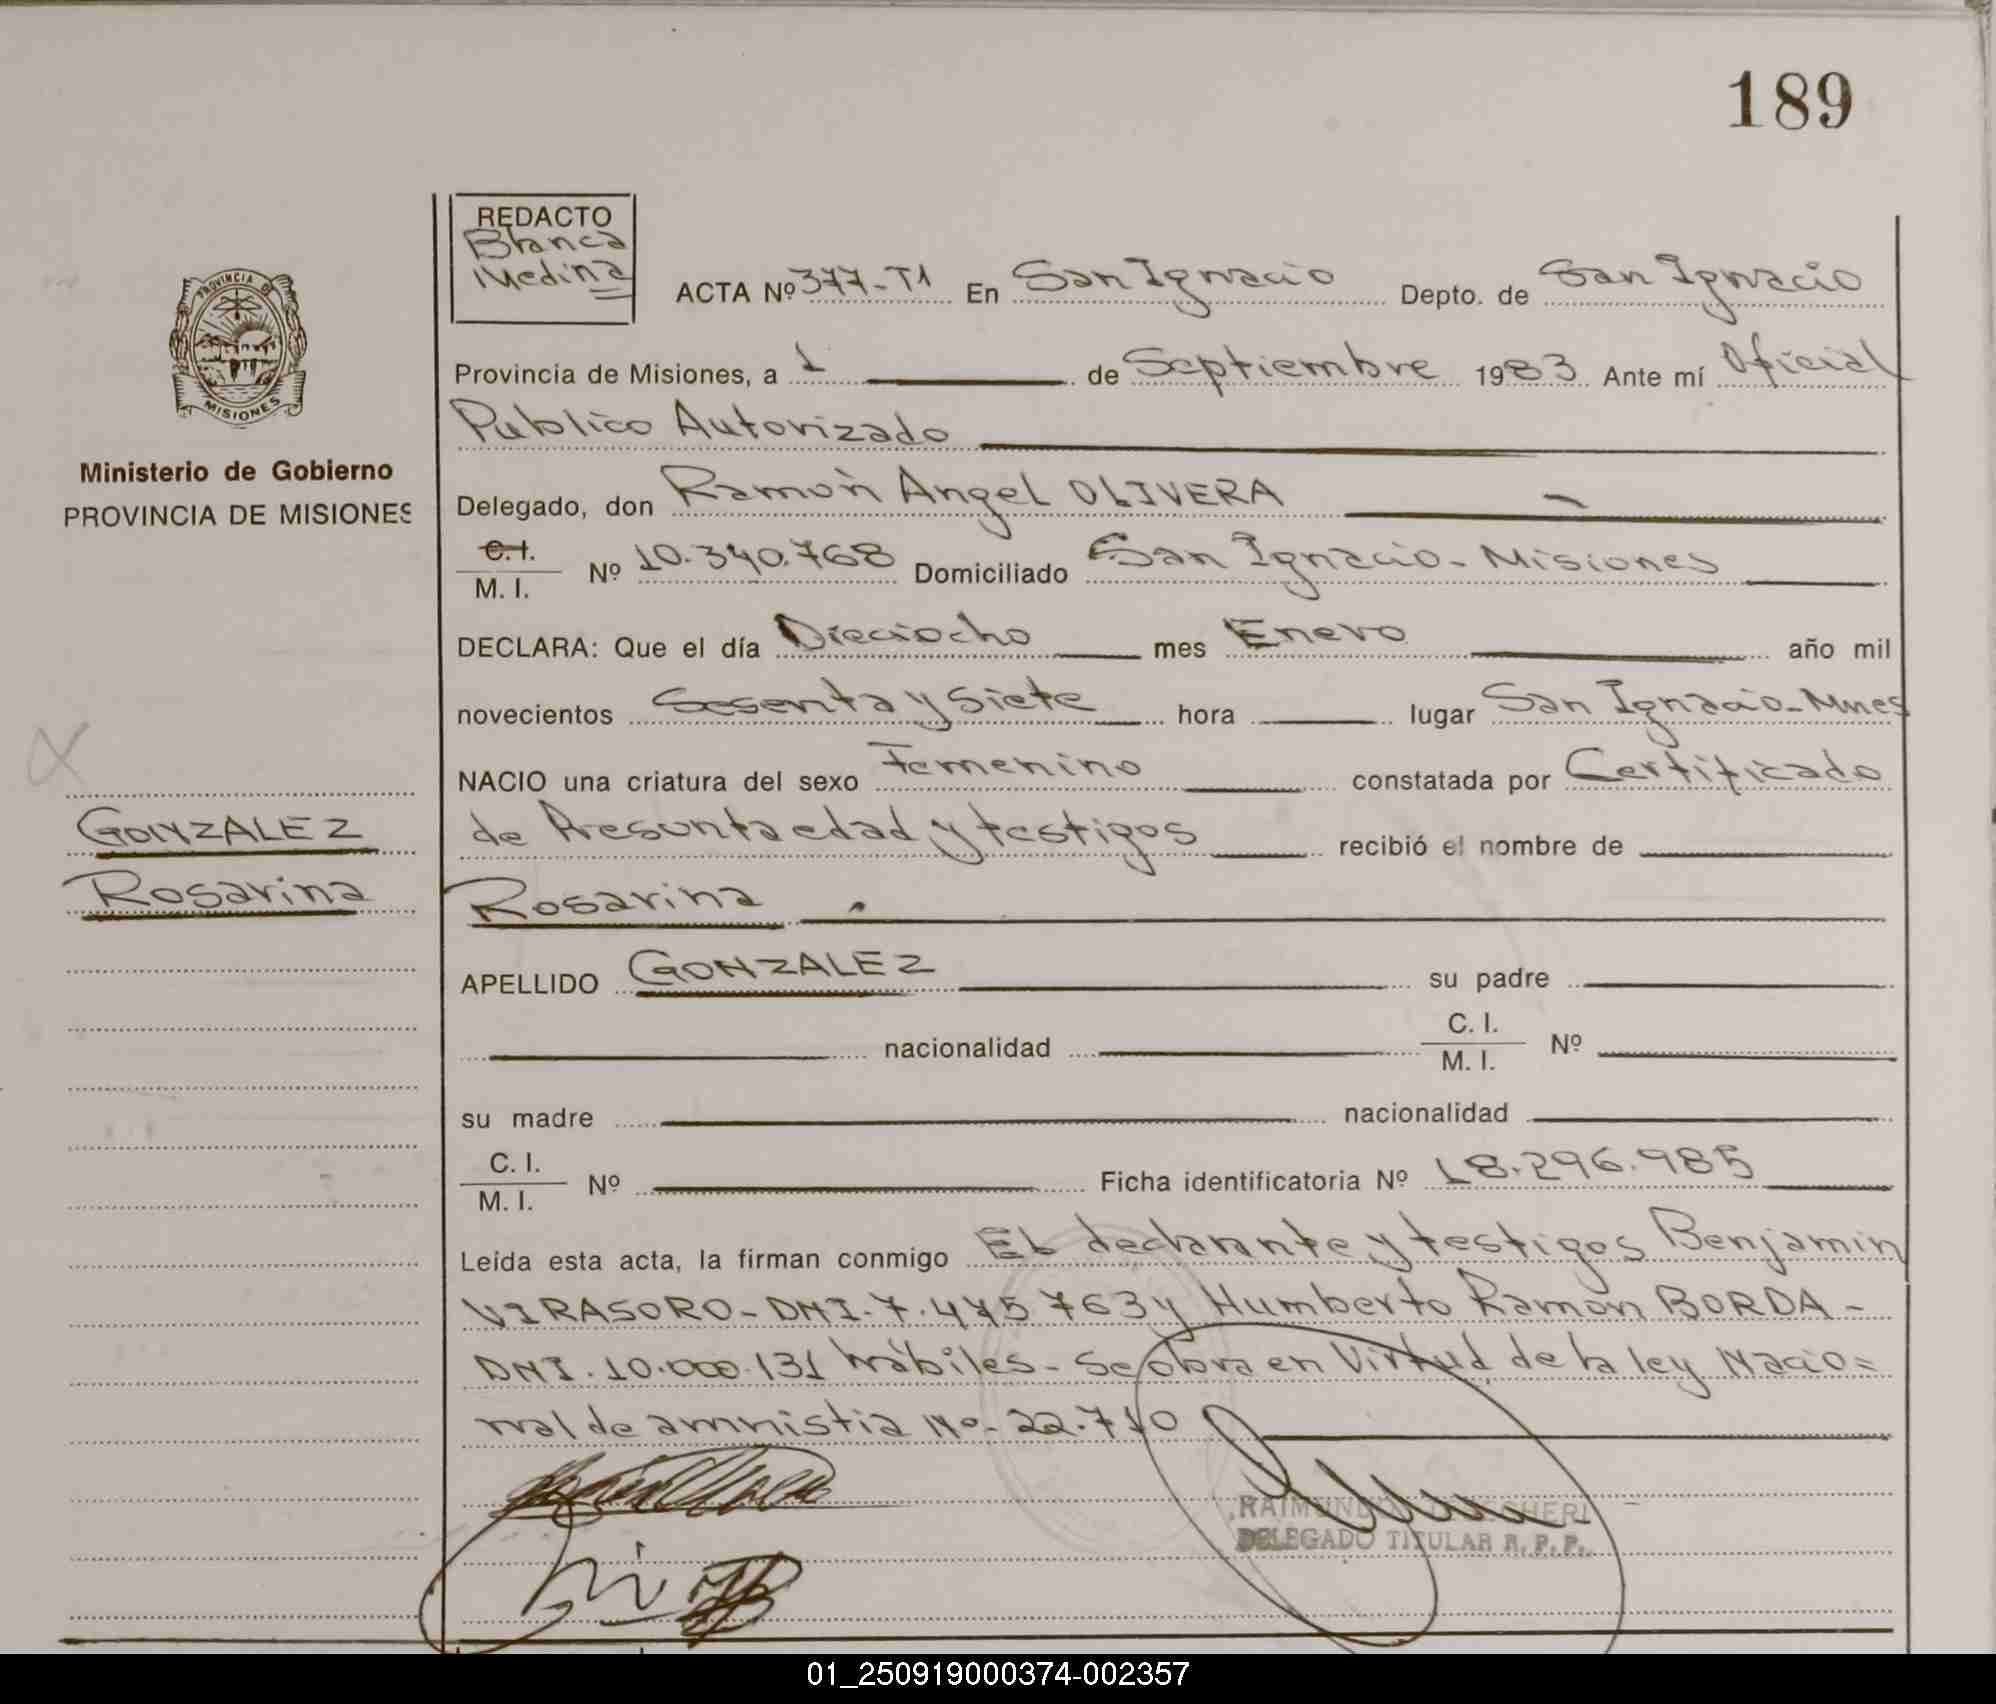 189
REDACTO
Blanca
Medina
PROVINCIA DE
MISIONES
ACTA Nº 377-T1 En San Ignacio Depto. de San Ignacio
Provincia de Misiones, a 1 de Septiembre 1983 Ante mí Oficial
Publico Autorizado
Ministerio de Gobierno
PROVINCIA DE MISIONES
Delegado, don Ramòn Angel OLIVERA
C.I.
M. I. Nº 10.340.768 Domiciliado San Ignacio - Misiones
DECLARA: Que el día Dieciocho mes Enero año mil
novecientos Sesenta y Siete hora lugar San Ignacio - Mnes
NACIO una criatura del sexo Femenino constatada por Certificado
GONZALEZ
de Presunta edad y testigos recibió el nombre de
Rosarina
Rosarina
APELLIDO GONZALEZ su padre
nacionalidad C. I.
M. I. Nº
su madre nacionalidad
C. I.
M. I. Nº Ficha identificatoria Nº 18.296.985
Leída esta acta, la firman conmigo El declarante y testigos Benjamin
VIRASORO - DNI. 7.475 763 y Humberto Ramon BORDA -
DNI. 10.000.131 hábiles - Se obra en Virtud de la ley Nacio=
nal de amnistia Nº - 22.710
RAIMUNDO
DELEGADO TITULAR R. P. P.
01_250919000374-002357